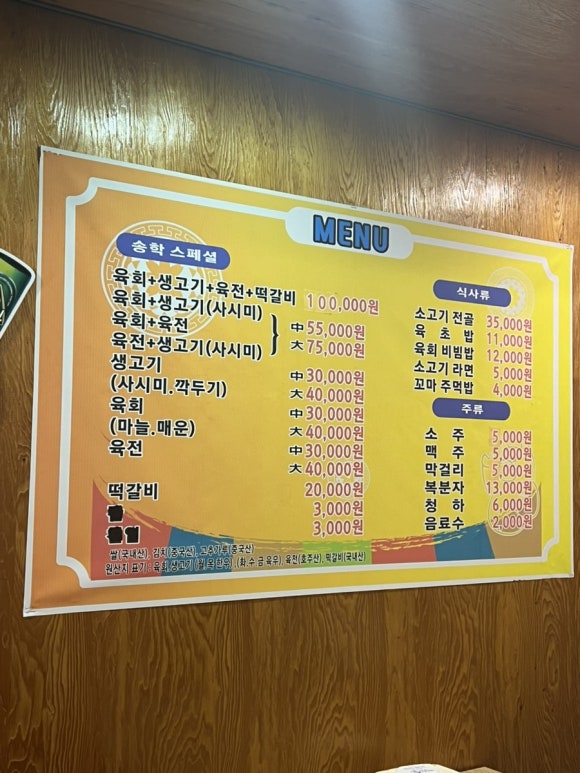 MENU
송학 스페셜
육회+생고기+육전+떡갈비 100,000원
육회+생고기(사시미)
육회+육전 中 55,000원
육전+생고기(사시미) 大 75,000원
생고기 中 30,000원
(사시미.깍두기) 大 40,000원
육회 中 30,000원
(마늘.매운) 大 40,000원
육전 中 30,000원
大 40,000원
떡갈비 20,000원
3,000원
3,000원
쌀(국내산), 김치(중국산), 고추가루(중국산)
원산지 표기 : 육회,생고기 (월,목 한우), (화,수 금 육우), 육전(호주산), 떡갈비(국내산)
식사류
소고기 전골 35,000원
육 초 밥 11,000원
육회 비빔밥 12,000원
소고기 라면 5,000원
꼬마 주먹밥 4,000원
주류
소 주 5,000원
맥 주 5,000원
막걸리 5,000원
복분자 13,000원
청 하 6,000원
음료수 2,000원